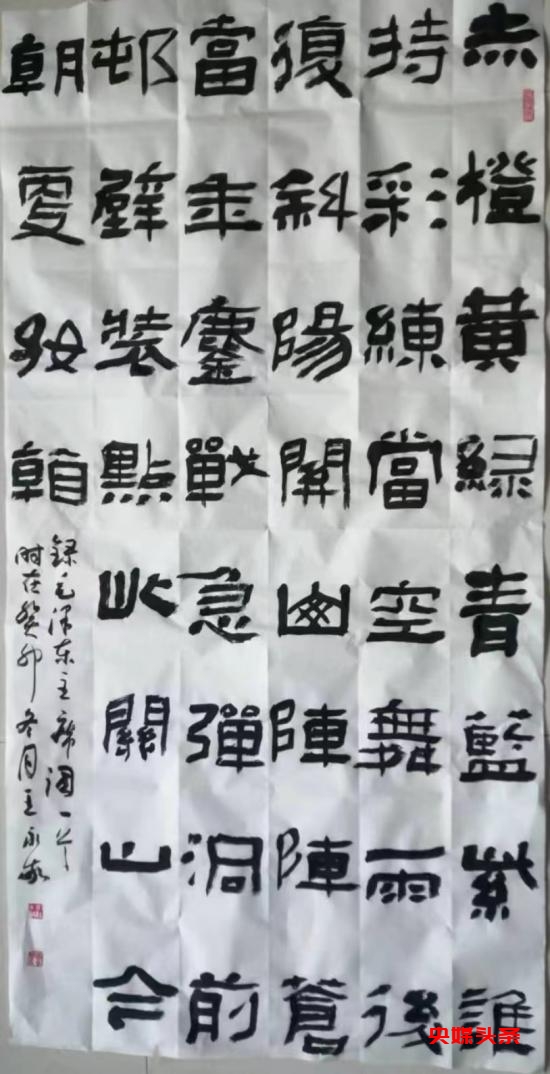 赤橙黃綠青藍紫誰
持彩練當空舞雨後
復斜陽開山陣陣蒼
當年鏖戰急彈洞前
邨壁裝點此關山今
朝更好看
錄毛泽东主席词一首
时在癸卯冬月王永
央媒头条